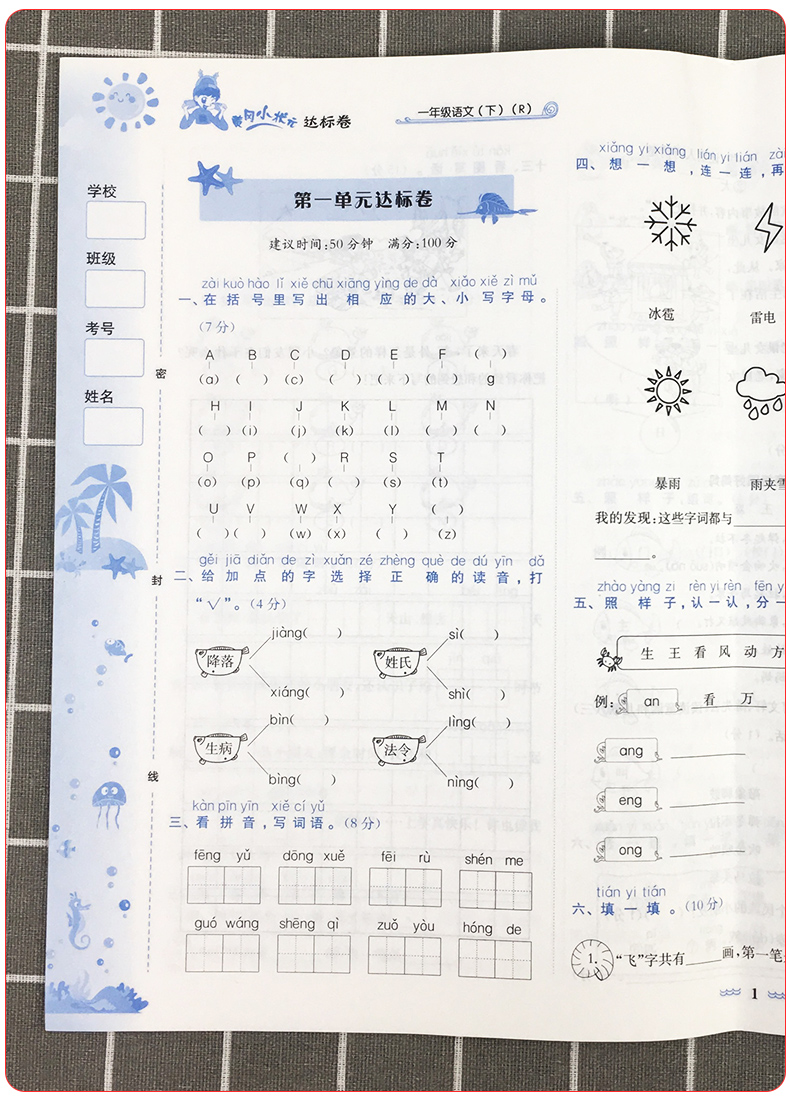 黄冈小状元 达标卷
一年级语文(下)(R)
学校
班级
考号
姓名
密
封
线
第一单元达标卷
建议时间:50分钟 满分:100分
zài kuò hào lǐ xiě chū xiāng yìng de dà xiǎo xiě zì mǔ
一、在括号里写出相应的大、小写字母。
(7分)
A B C D E F ( )
(a) ( ) (c) ( ) ( ) ( ) g
H I J K L M N
( ) (i) (j) (k) (l) ( ) ( )
O P ( ) R S T
(o) (p) (q) ( ) (s) (t)
U V W X Y ( )
( ) ( ) (w) (x) ( ) (z)
gěi jiā diǎn de zì xuǎn zé zhèng què de dú yīn dǎ
二、给加点的字选择正确的读音,打
“√”。(4分)
jiàng( ) sì( )
降落 姓氏
xiáng( ) shì( )
bìn( ) lìng( )
生病 法令
bìng( ) nìng( )
kàn pīn yīn xiě cí yǔ
三、看拼音,写词语。(8分)
fēng yǔ dōng xuě fēi rù shén me
guó wáng shēng qì zuǒ yòu hóng de
xiǎng yi xiǎng lián yi lián zài
四、想一想,连一连,再
冰雹 雷电
暴雨 雨夹雪
我的发现:这些字词都与______
______。
zhào yàng zi rèn yi rèn fēn y
五、照样子,认一认,分一
生 王 看 风 动 方
例: an 看 万
ang
eng
ong
tián yi tián
六、填一填。(10分)
1. “飞”字共有______画,第一笔
1